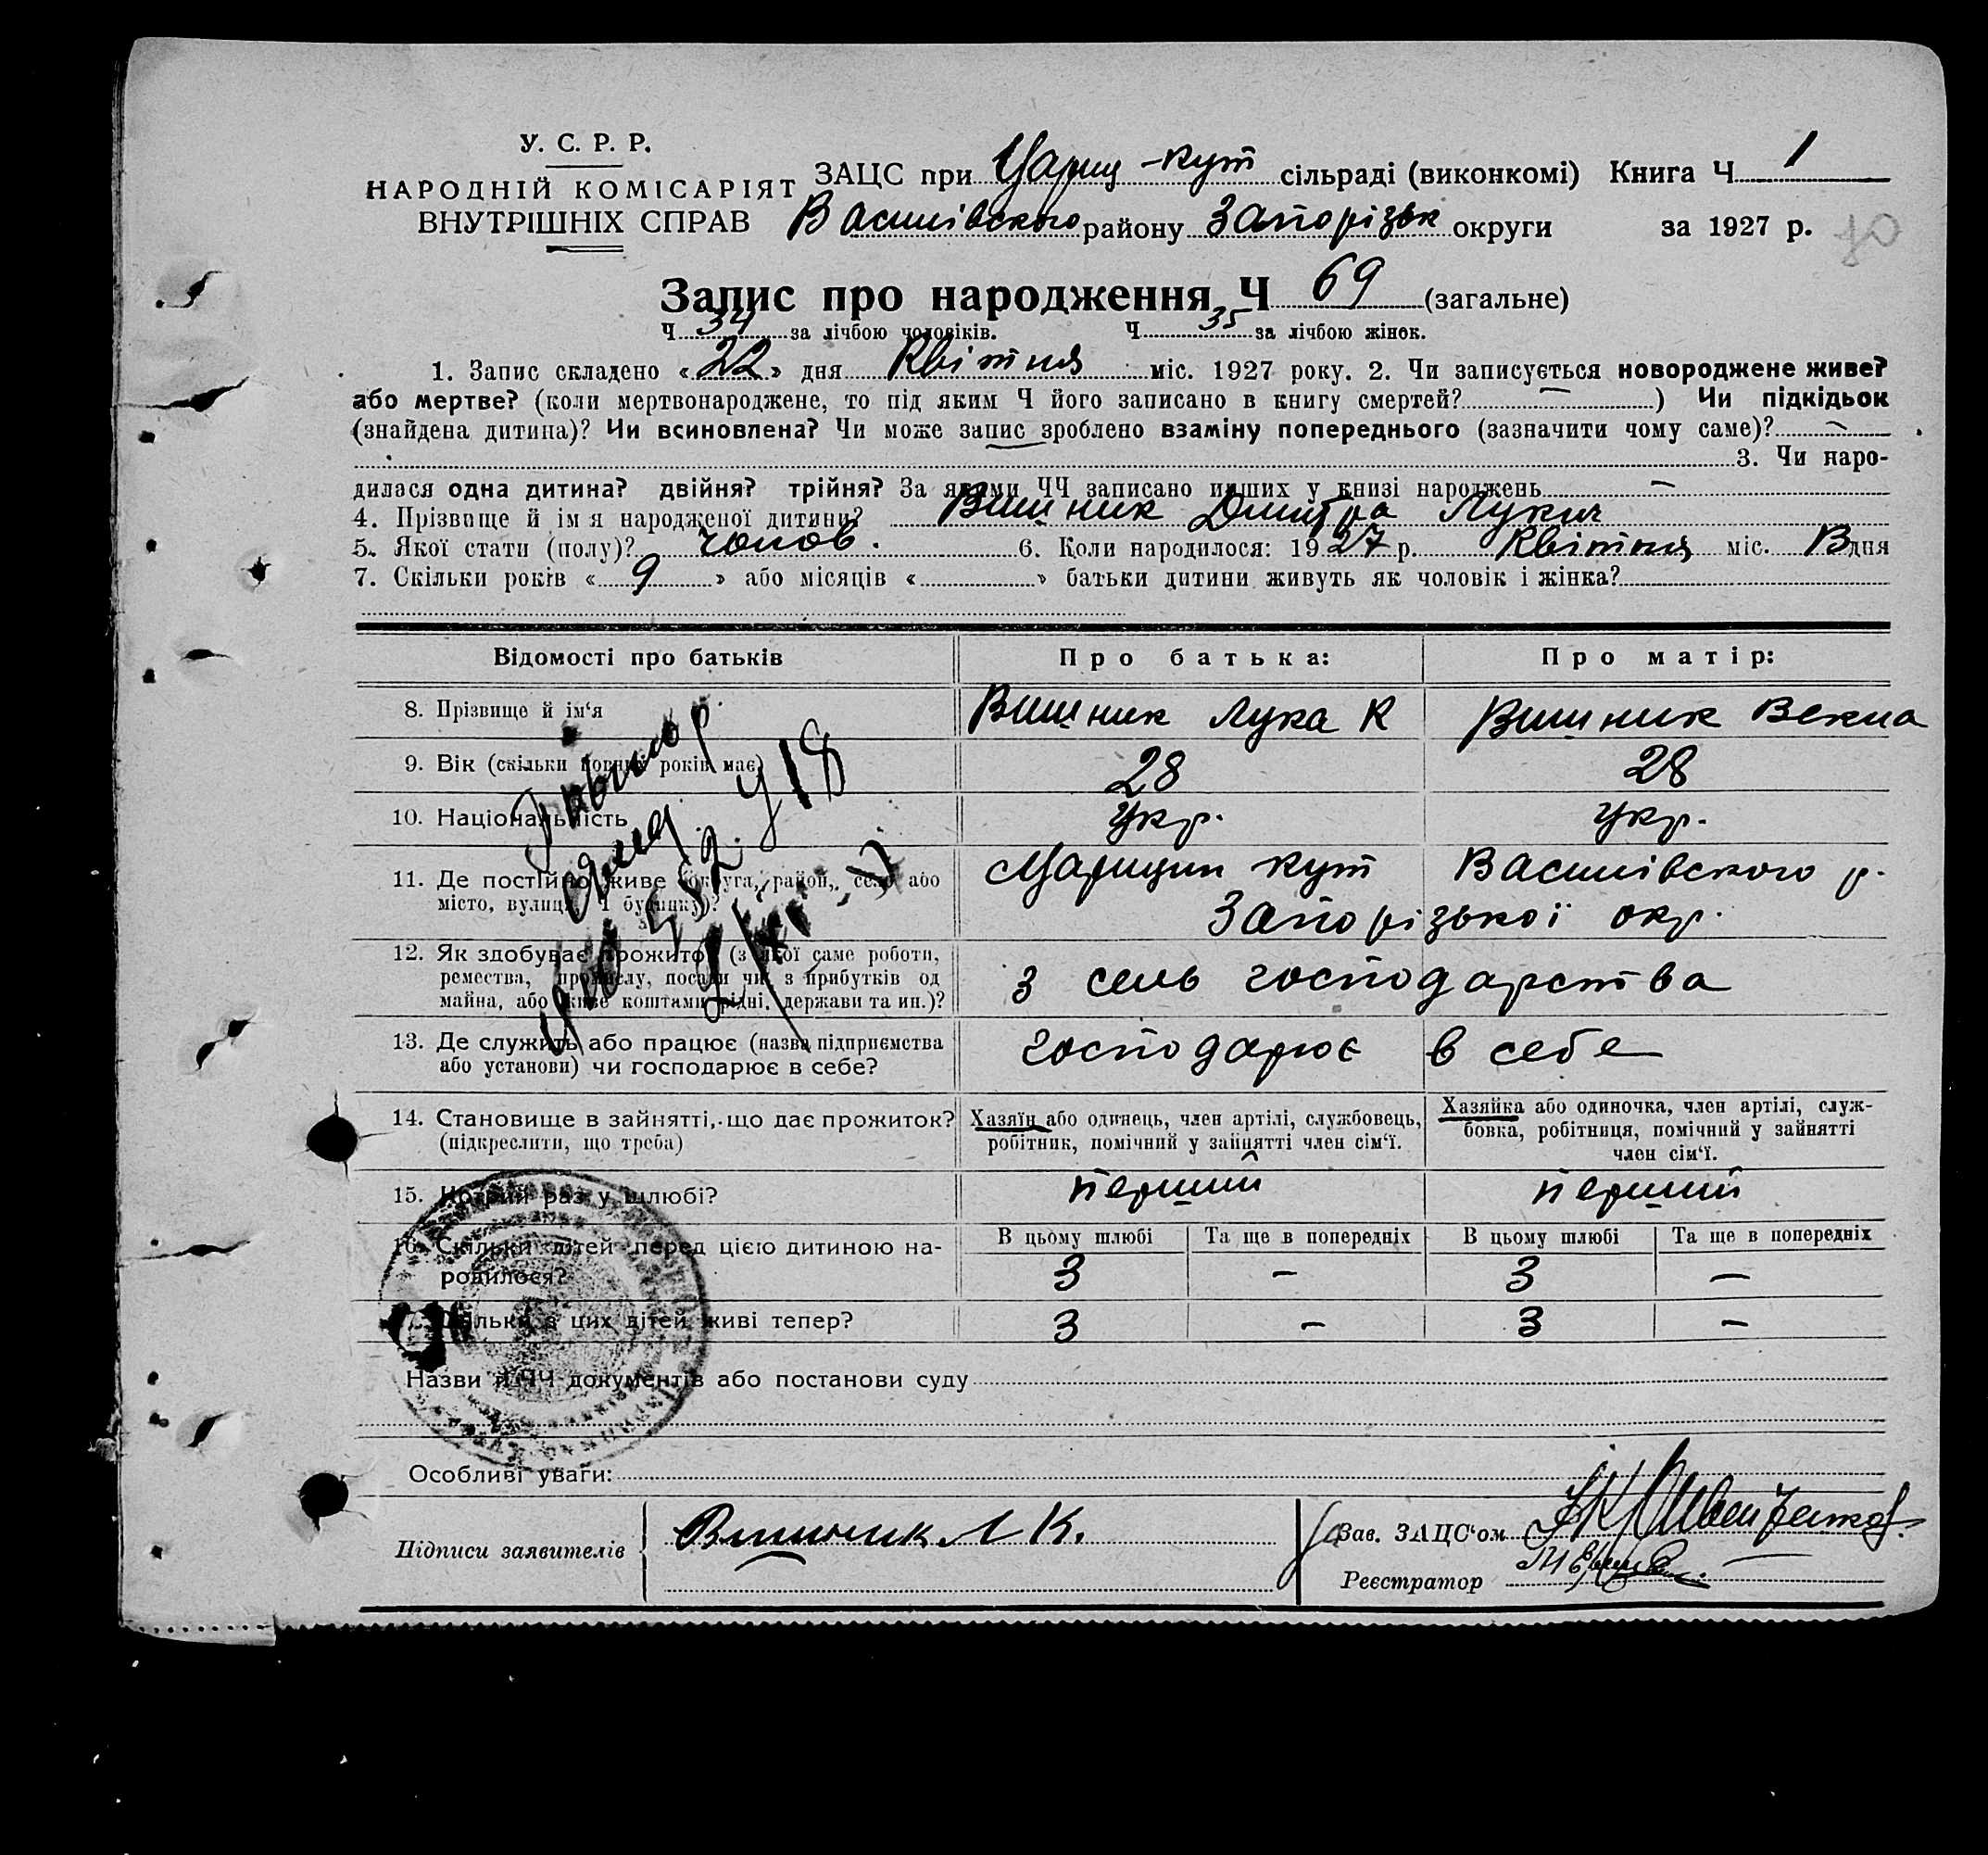 У. С. Р. Р.
НАРОДНІЙ КОМІСАРІЯТ
ВНУТРІШНІХ СПРАВ
ЗАЦС при Цариц-кут сільраді (виконкомі) Книга Ч 1
Василівського району Запорізьк округи за 1927 р.
Запис про народження Ч 69 (загальне)
Ч 34 за лічбою чоловіків. Ч 35 за лічбою жінок.
1. Запис складено « 22 » дня Квітня міс. 1927 року. 2. Чи записується новороджене живе?
або мертве? (коли мертвонароджене, то під яким Ч його записано в книгу смертей? — ) Чи підкідьок
(знайдена дитина)? Чи всиновлена? Чи може запис зроблено взаміну попереднього (зазначити чому саме)? —
3. Чи наро-
дилася одна дитина? двійня? трійня? За якими ЧЧ записано инших у книзі народжень —
4. Прізвище й ім'я народженої дитини? Вишник Дмитра Лукич
5. Якої стати (полу)? чолов. 6. Коли народилося: 1927 р. Квітня міс. 13 дня
7. Скільки років « 9 » або місяців « » батьки дитини живуть як чоловік і жінка?
Відомості про батьків Про батька: Про матір:
8. Прізвище й ім'я Вишник Лука К Вишник
9. Вік (скільки повних років має) 28 28
10. Національність Укр. Укр.
11. Де постійно живе (округа, район, село або Царицин кут Василівського р.
місто, вулиця, Ч будинку)? Запорізької окр.
12. Як здобуває прожиток (з якої саме роботи,
ремества, промислу, посади чи з прибутків од
майна, або живе коштами рідні, держави та ин.)? з сель господарства
13. Де служить або працює (назва підприємства
або установи) чи господарює в себе? господарює в себе
14. Становище в зайнятті, що дає прожиток? Хазяїн або одинець, член артілі, службовець, Хазяйка або одиночка, член артілі, служ-
(підкреслити, що треба) робітник, помічний у зайнятті член сім'ї. бовка, робітниця, помічний у зайнятті
член сім'ї.
15. Котрий раз у шлюбі? перший перший
В цьому шлюбі Та ще в попередніх В цьому шлюбі Та ще в попередніх
16. Скільки дітей перед цією дитиною на-
родилося? 3 — 3 —
17. Скільки з цих дітей живі тепер? 3 — 3 —
Назви й ЧЧ документів або постанови суду
Особливі уваги:
Підписи заявителів Вишник Л К.
Зав. ЗАЦС'ом
Реєстратор